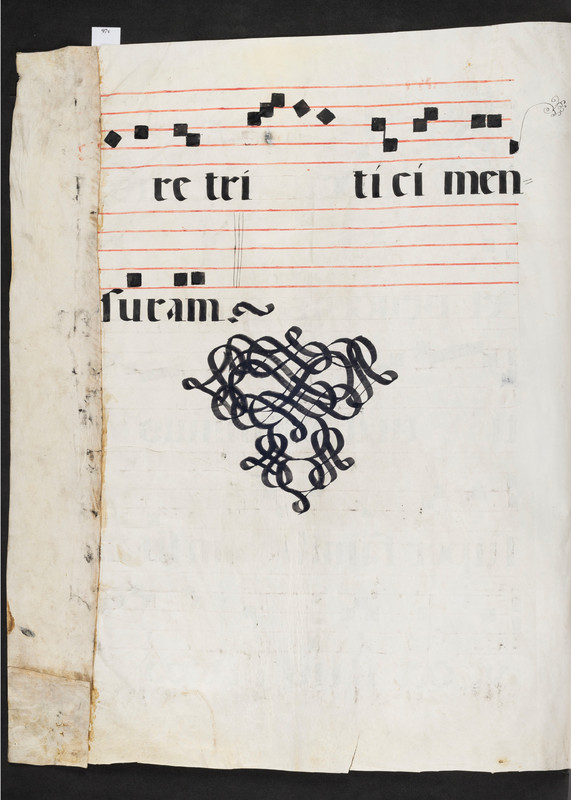 97v
re tri ti ci men=
suram